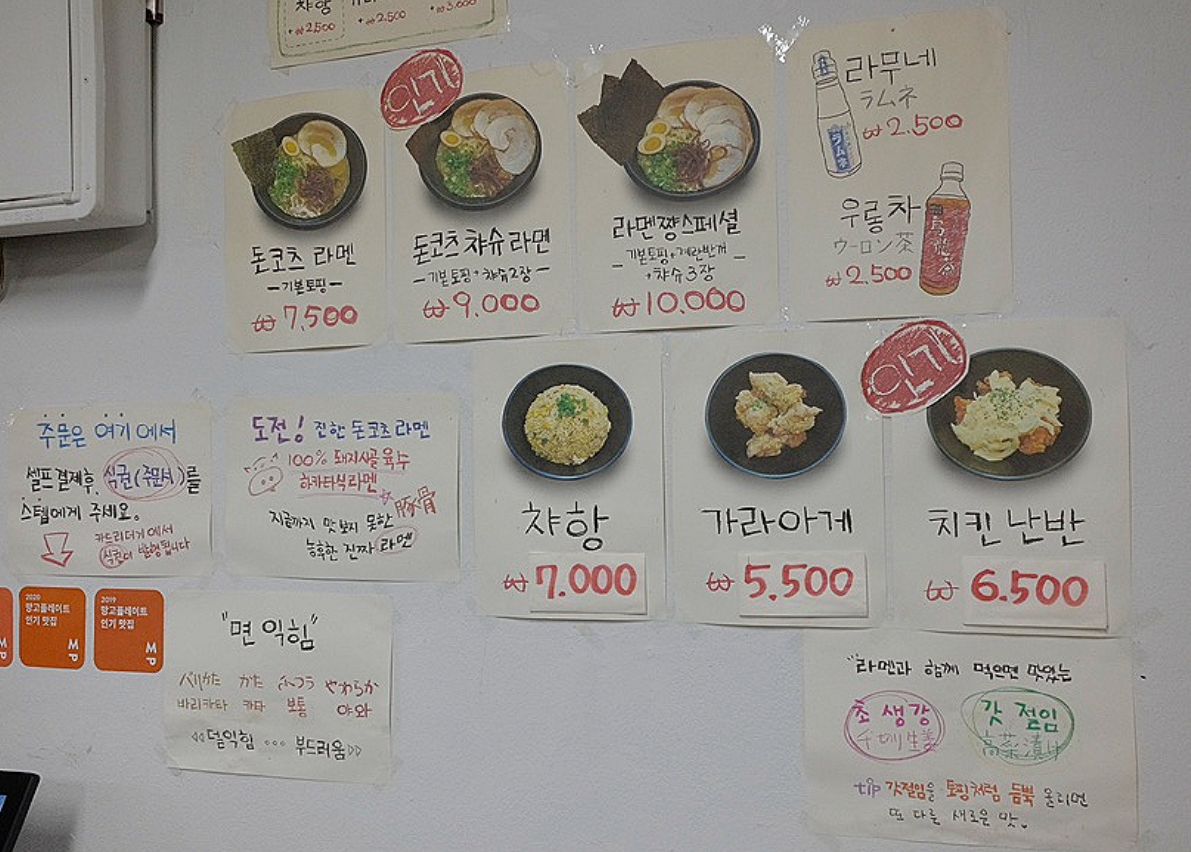 챠항
₩2,500
₩2,500
인기
돈코츠 라멘
-기본토핑-
₩7,500
돈코츠 챠슈 라멘
-기본토핑+챠슈2장-
₩9.000
라멘짱스페셜
-기본토핑+계란반개-
+챠슈3장
₩10.000
라무네
ラムネ
₩2.500
ラムネ
우롱차
ウーロン茶
₩2.500
烏龍茶
인기
챠항
₩7.000
가라아게
₩5.500
치킨 난반
₩6.500
주문은 여기에서
셀프결제후, 식권(주문서)를
스텝에게 주세요.
카드리더기에서
식권이 발행됩니다
도전! 진한 돈코츠 라멘
100% 돼지사골 육수
하카타식라멘
豚骨
지금까지 맛보지 못한
농후한 진짜 라멘
2020
망고플레이트
인기 맛집
MP
2019
망고플레이트
인기 맛집
MP
"면 익힘"
バリかた かた ふつう やわらか
바리카타 카타 보통 야와
<<덜익힘 ... 부드러움>>
"라멘과 함께 먹으면 맛있는
초 생강
갓 절임
千切り生姜
高菜漬け
tip 갓절임을 토핑처럼 듬뿍 올리면
또 다른 새로운 맛.